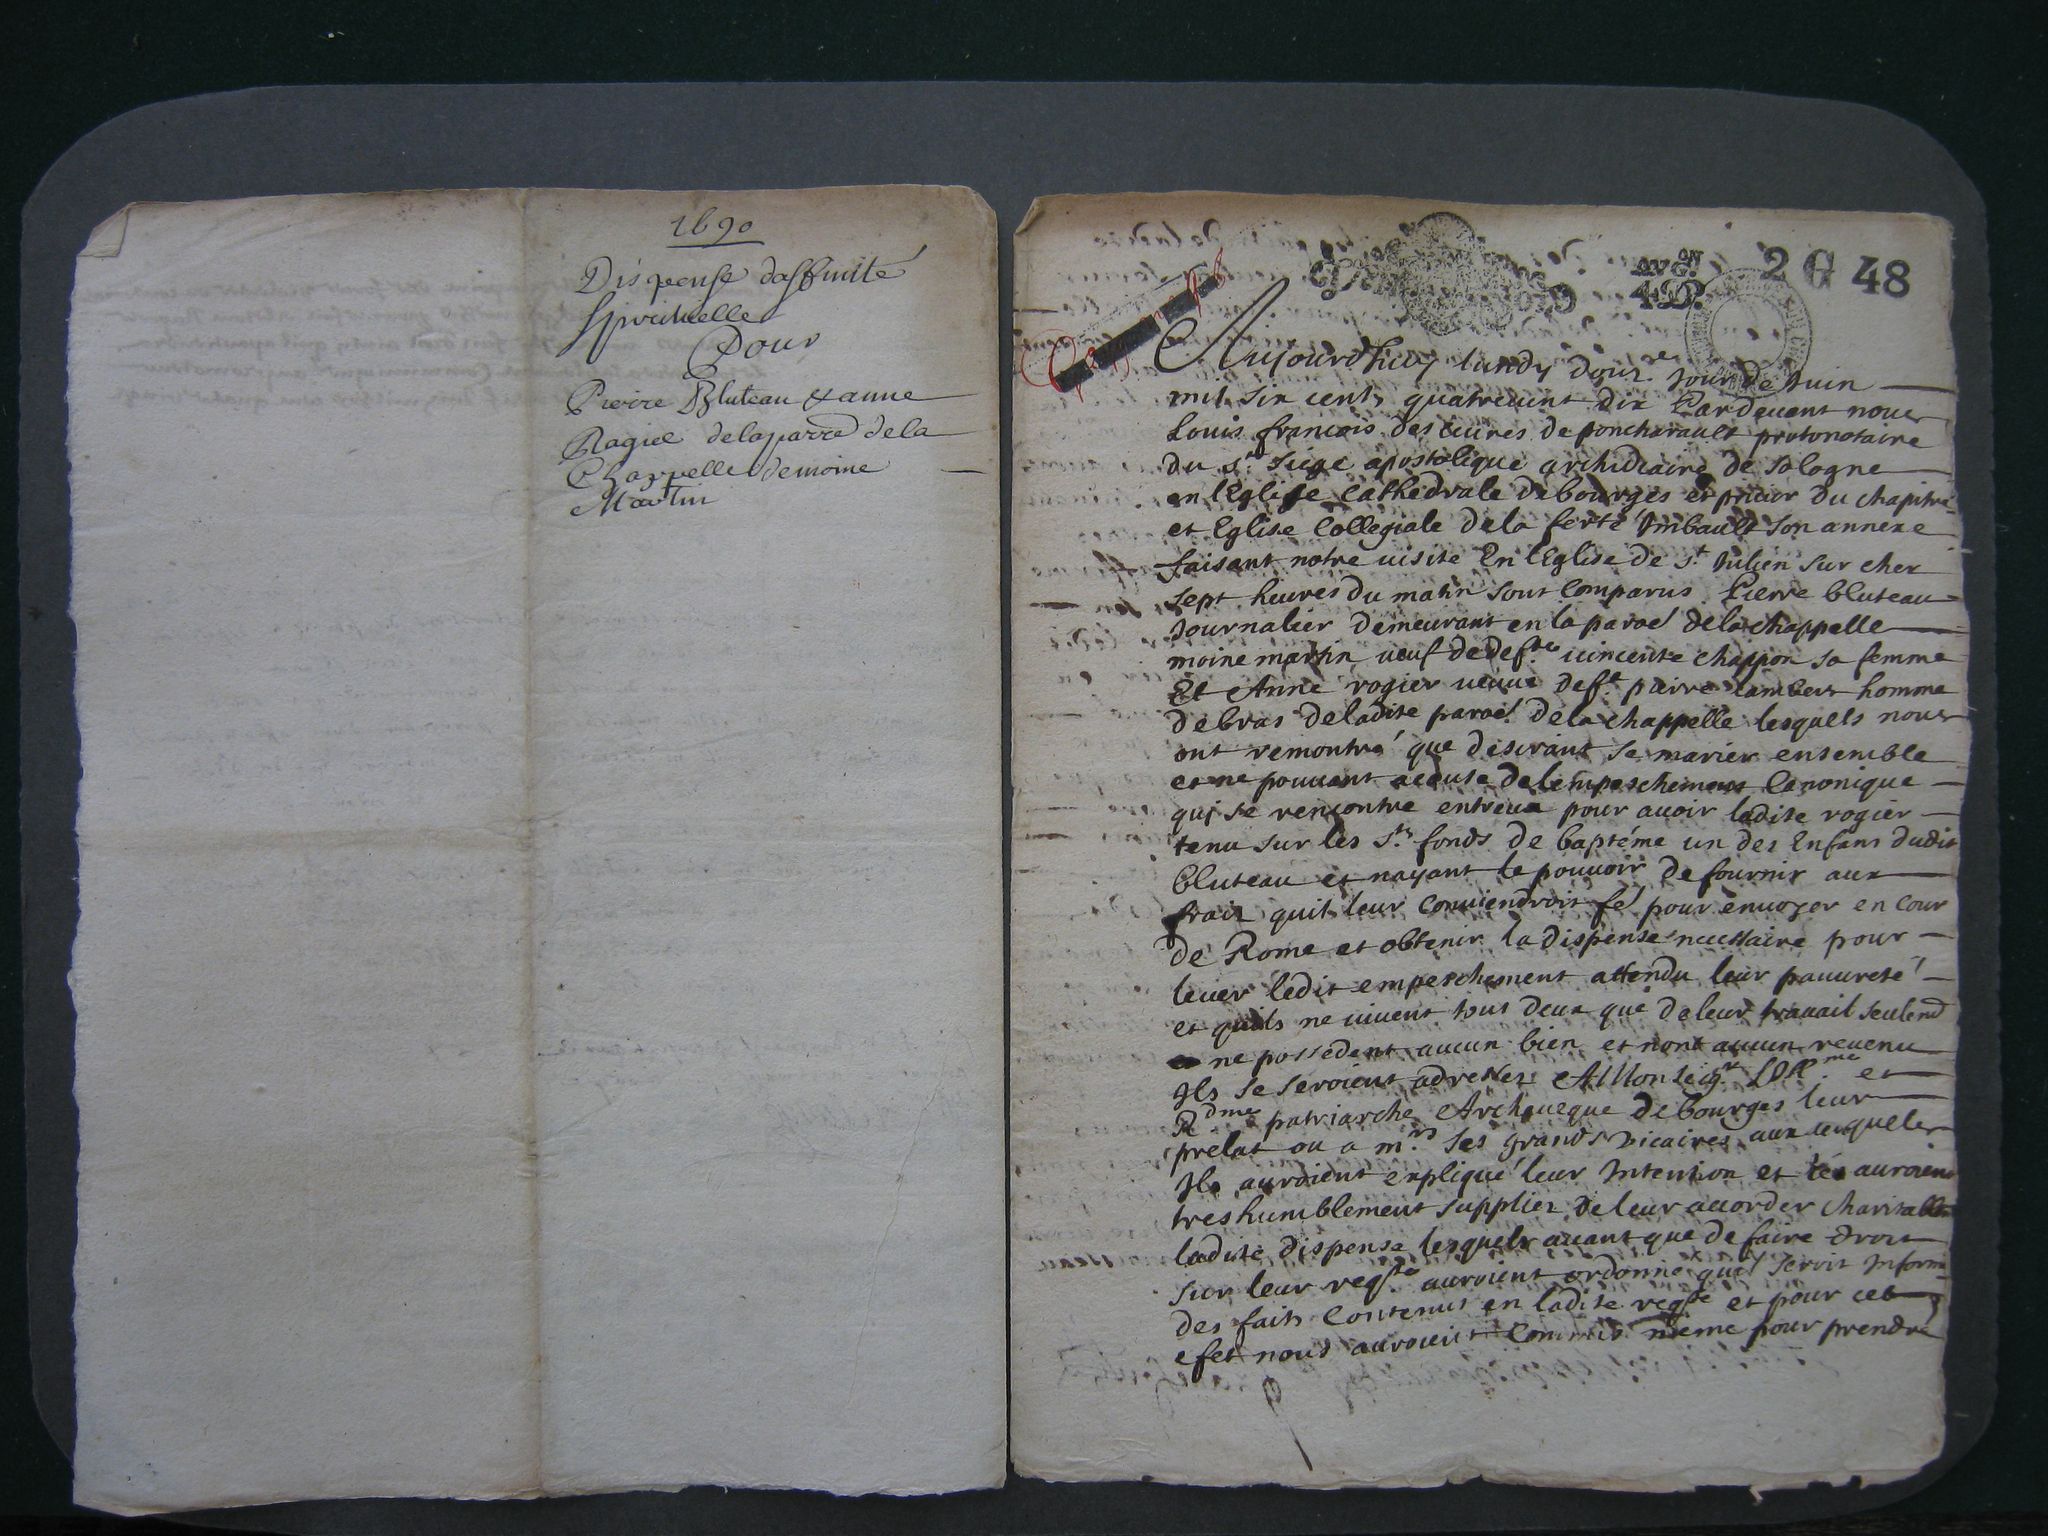 1690
Dispense daffinité
Spirituelle
Pour
Pierre Bluteau & anne
Ragice delaparre dela
Chappelle demoine
Martin
AVG.ON 2 G 48
4D.
Aujourdhuy lundy douz.e jour de Juin
mil six cents quatrevint dix Pardevant nous
Louis francois des cures de poncharault protonotaire
du St. siege apostolique archidiacre de Sologne
en lEglise Cathedrale de bourges et prieur du chapitre
et Eglise Collegiale dela ferté Imbault son annexe
faisant notre visite En lEglise de St. Julien sur cher
sept heures du matin sont Comparus Pierre bluteau
Journalier demeurant en la paroe. dela chappelle
moine martin veuf de deffte. vincente chappon sa femme
Et Anne rogier veuve deft. pierre lambert homme
de bras deladite paroe. dela chappelle lesquels nous
ont remontré que desirant se marier ensemble
et ne pouvant acause delempeschement Canonique
qui se rencontre entreux pour avoir ladite rogier
tenu sur les Sts. fonds de baptéme un des Enfans dudit
bluteau et nayant le pouvoir de fournir aux
fraix quil leur Conviendroit fe. pour envoyer en cour
de Rome et obtenir la dispense necessaire pour
lever ledit empeschement attendu leur pauvreté
et quils ne vivent tous deux que de leur travail
ne possedent aucun bien et nont aucun revenu
Ils se seroient adressez A Monseigr. et
Rdme patriarche Archeveque de bourges leur
prelat ou a mrs. ses grands vicaires aux lesquels
Ils auroient expliqué leur Intention et les auroient
tres humblement supplier de leur accorder
ladite dispense lesquels avant que de faire droit
sur leur reqte. auroient ordonné quil seroit Informé
des faits Contenus en ladite reqte et pour cet
efet nous auroient Commis meme pour prendre